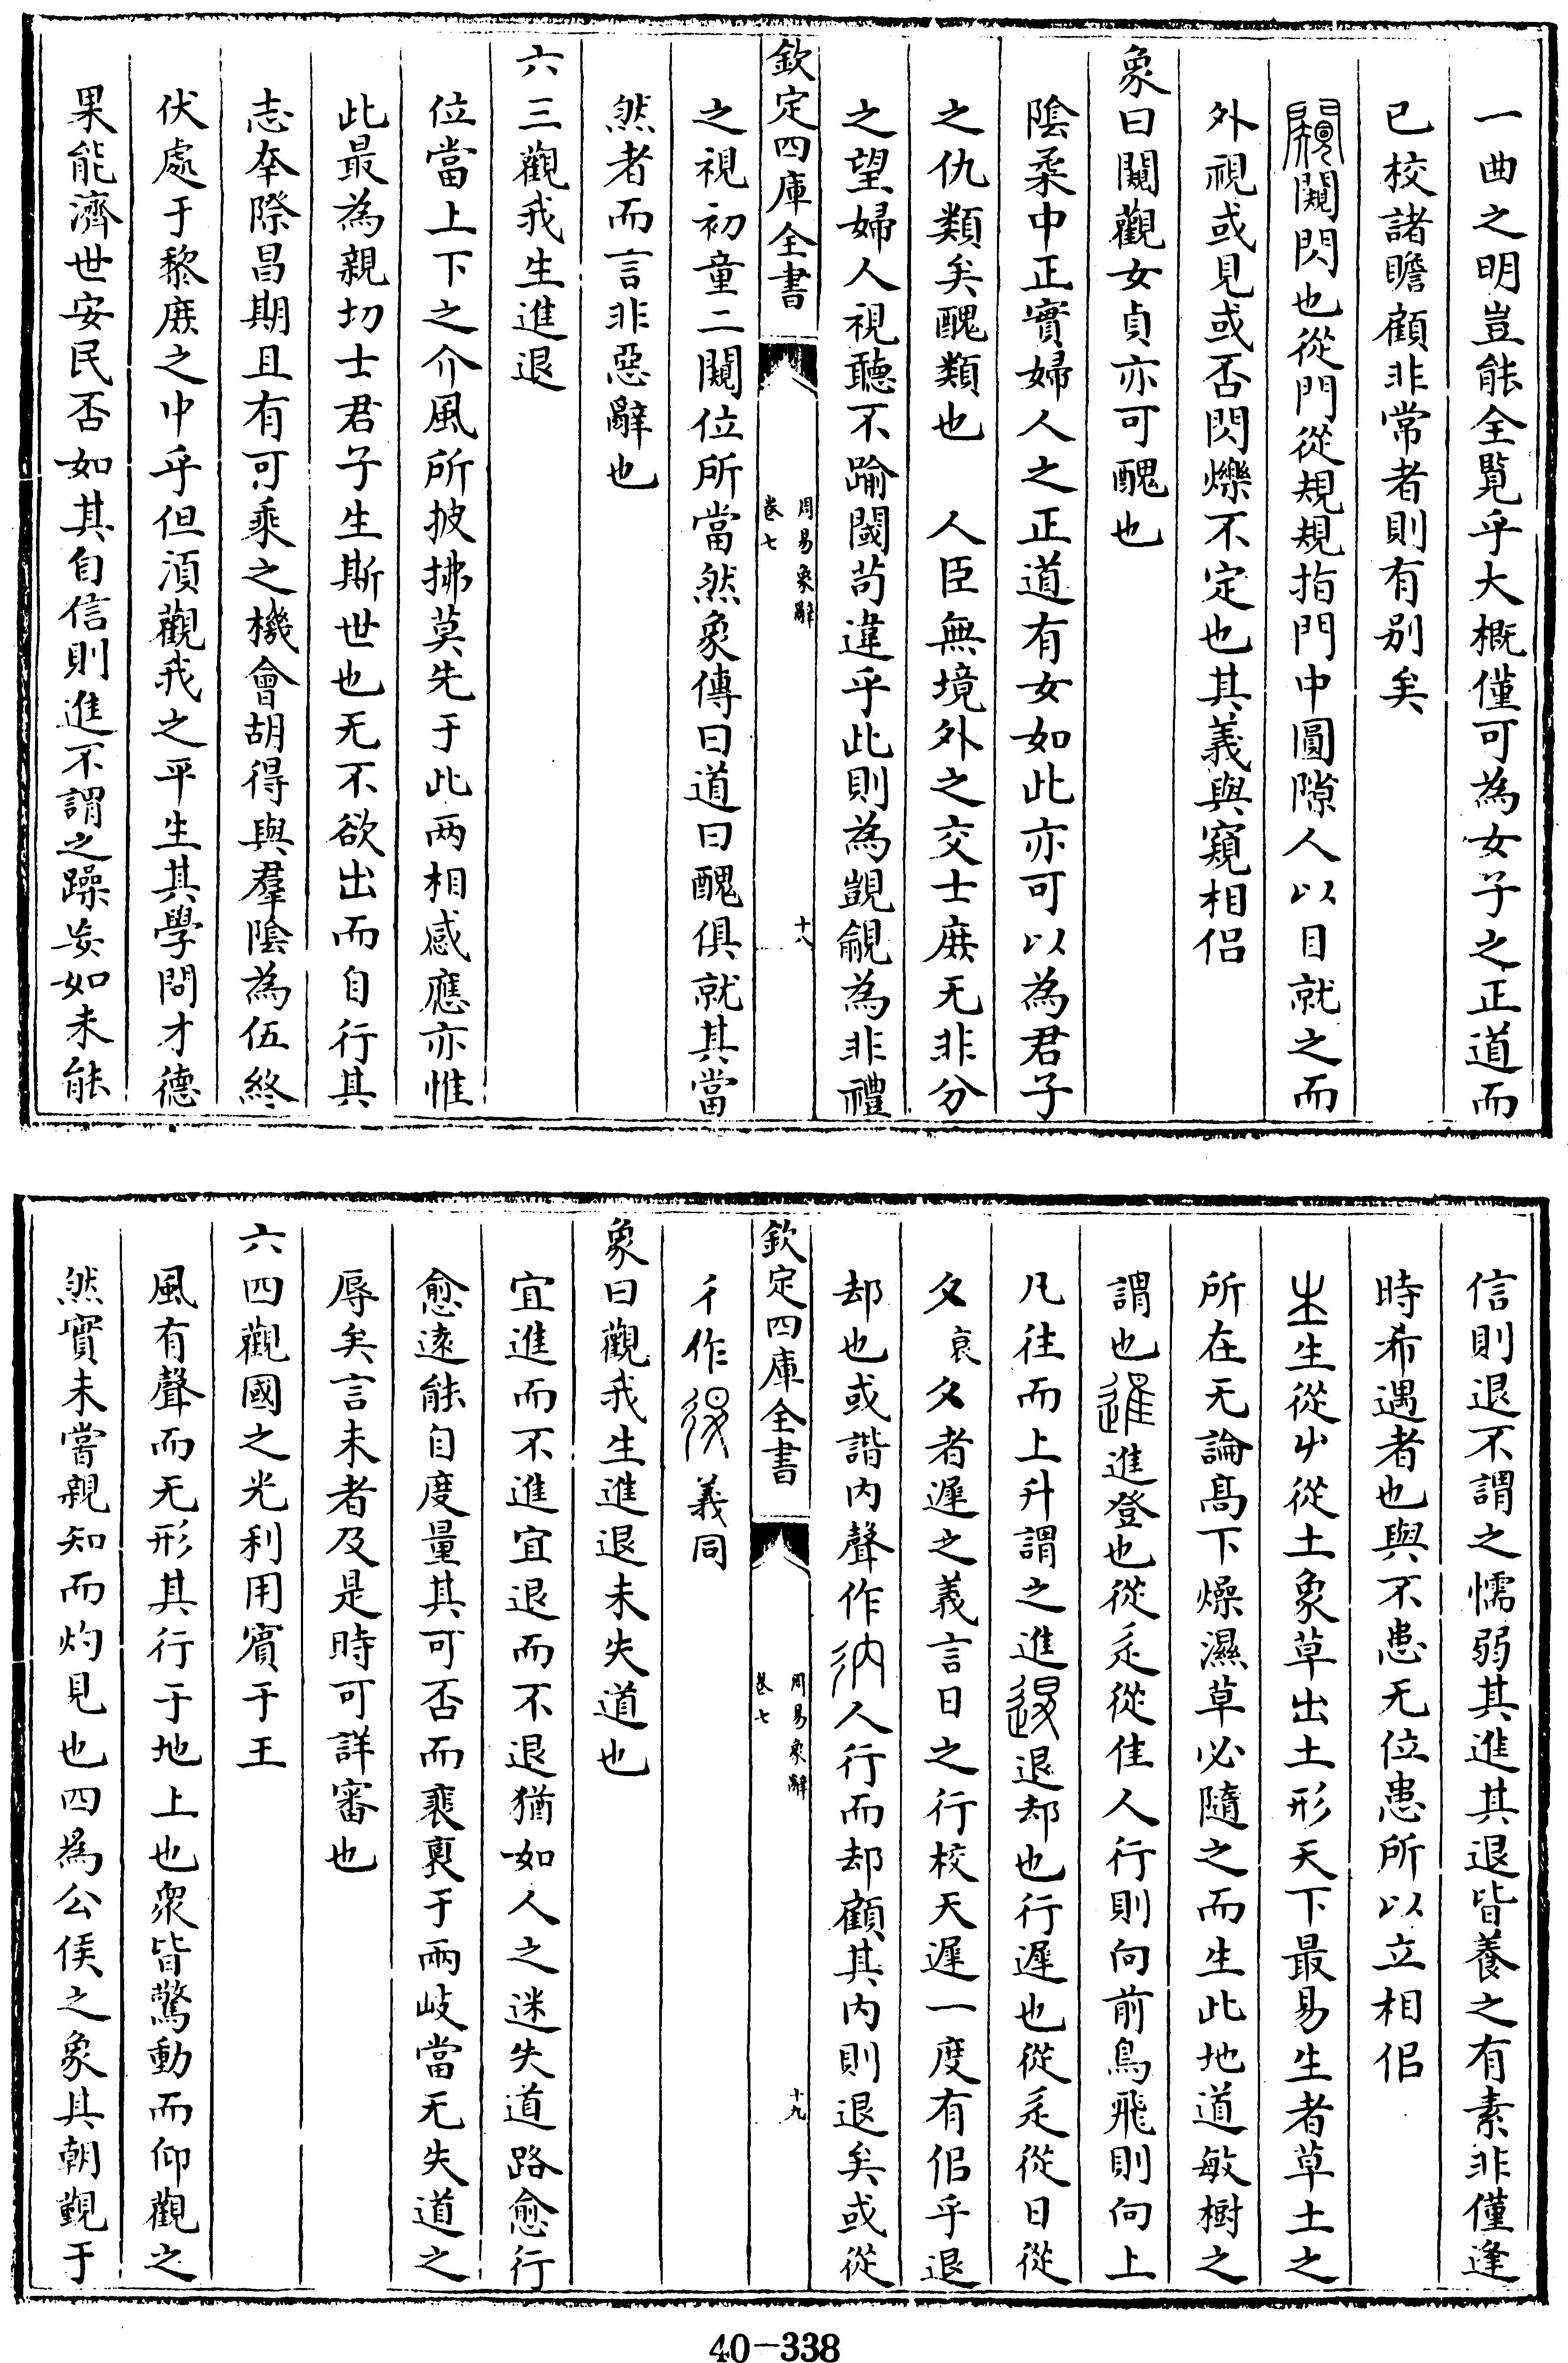 一曲之明豈能全覧乎大概僅可為女子之正道而
已校諸瞻顧非常者則有别矣
闚閃也從門從規規指門中圓隙人以目就之而
外視或見或否閃爍不定也其義與窺相侣
象曰闚觀女貞亦可醜也
陰柔中正實婦人之正道有女如此亦可以為君子
之仇類矣醜類也　人臣無境外之交士庶无非分
之望婦人視聽不踰閾茍違乎此則為覬覦為非禮
欽定四庫全書
周易象辭
卷七
十八
之視初童二闚位所當然象傳曰道曰醜俱就其當
然者而言非惡辭也
六三觀我生進退
位當上下之介風所披拂莫先于此兩相感應亦惟
此最為親切士君子生斯世也无不欲出而自行其
志夲際昌期且有可乘之機會胡得與羣陰為伍終
伏處于黎庶之中乎但湏觀我之平生其學問才德
果能濟世安民否如其自信則進不謂之躁妄如未能
信則退不謂之懦弱其進其退皆養之有素非僅逢
時希遇者也與不患无位患所以立相侣
生從屮從土象草出土形天下最易生者草土之
所在无論髙下燥濕草必隨之而生此地道敏樹之
謂也進登也從辵從隹人行則向前鳥飛則向上
凡往而上升謂之進退却也行遲也從辵從日從
夊衰夊者遲之義言日之行校天遲一度有侣乎退
却也或諧内聲作人行而却顧其内則退矣或從
欽定四庫全書
周易象辭
卷七
十九
彳作義同
象曰觀我生進退未失道也
宜進而不進宜退而不退猶如人之迷失道路愈行
愈逺能自度量其可否而裴裏于兩岐當无失道之
辱矣言未者及是時可詳審也
六四觀國之光利用賓于王
風有聲而无形其行于地上也衆皆驚動而仰觀之
然實未嘗親知而灼見也四為公侯之象其朝覲于
40-338